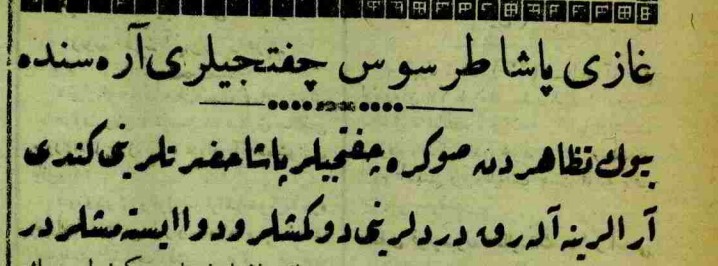 غازی پاشا طرسوس چفتجیلری آره‌سنده
بیوك تظاهردن صوكره چفتجیلر پاشا حضرتلرینی كندی
آرالرینه آلەرق دردلرینی دوكمشلر و دوا ایسته‌مشلردر